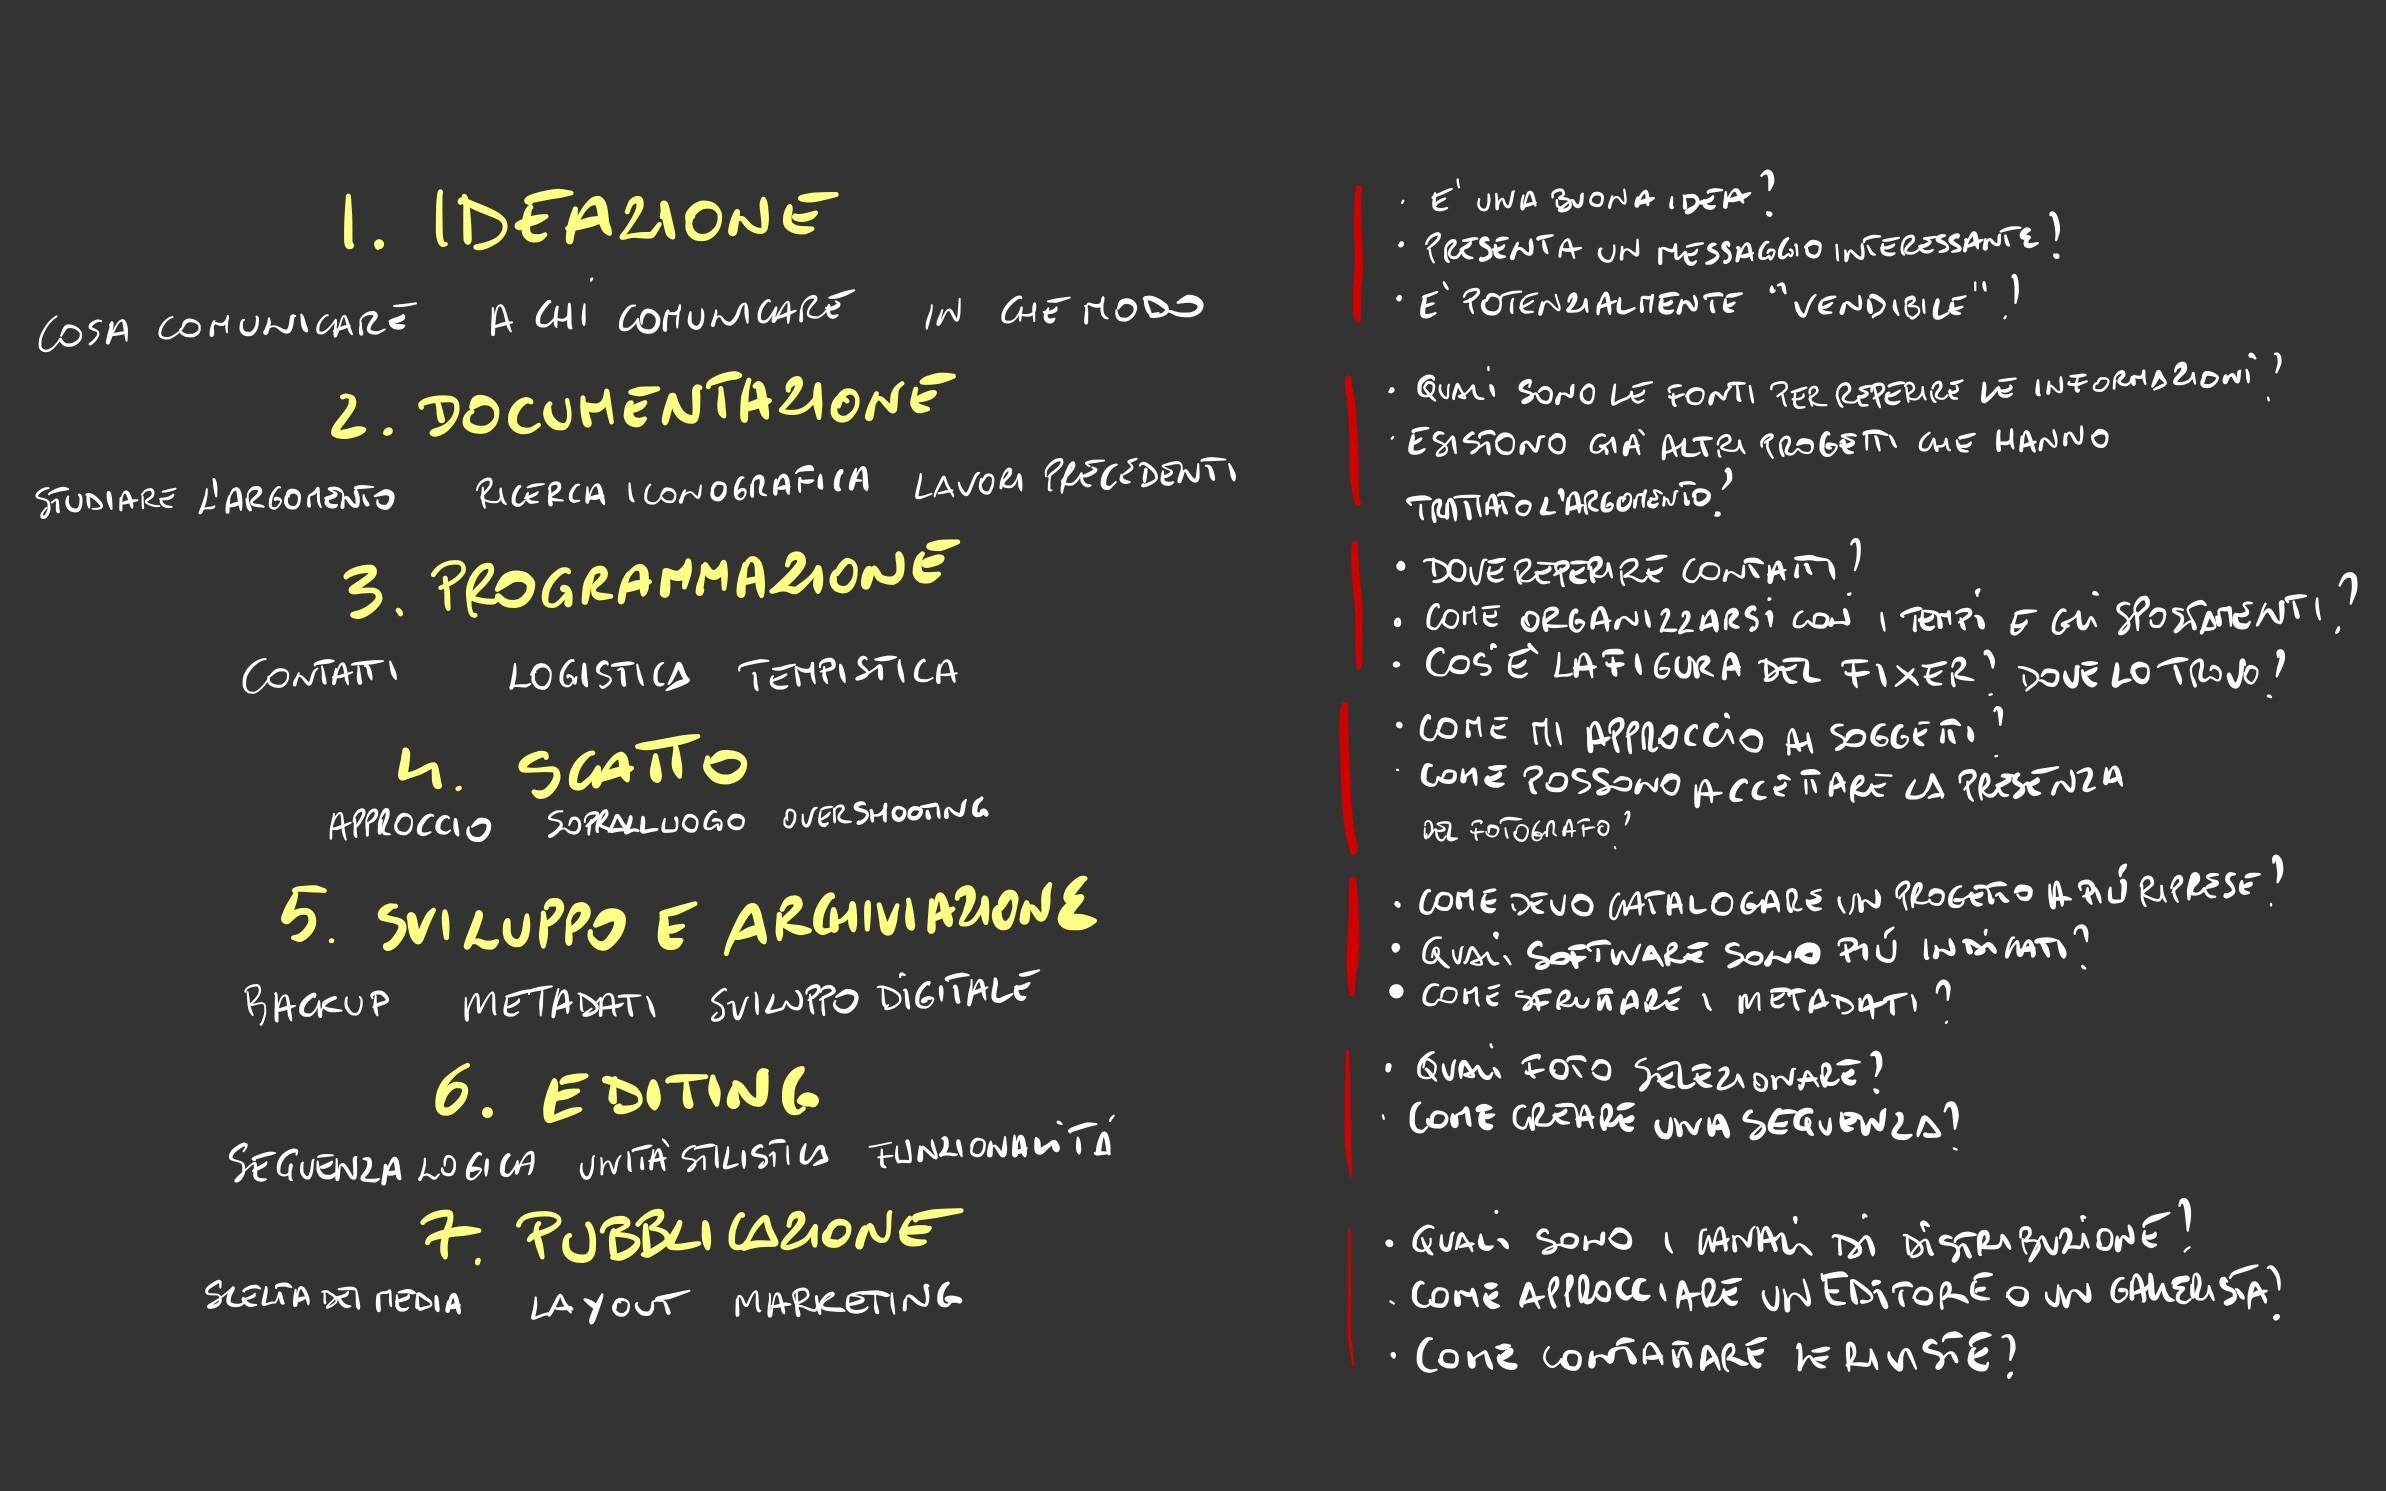 1. IDEAZIONE
COSA COMUNICARE A CHI COMUNICARE IN CHE MODO
· E' UNA BUONA IDEA?
· PRESENTA UN MESSAGGIO INTERESSANTE?
· E' POTENZIALMENTE "VENDIBILE"?
2. DOCUMENTAZIONE
STUDIARE L'ARGOMENTO RICERCA ICONOGRAFICA LAVORI PRECEDENTI
· QUALI SONO LE FONTI PER REPERIRE LE INFORMAZIONI?
· ESISTONO GIÀ ALTRI PROGETTI CHE HANNO
TRATTATO L'ARGOMENTO?
3. PROGRAMMAZIONE
CONTATTI LOGISTICA TEMPISTICA
· DOVE REPERIRE CONTATTI?
· COME ORGANIZZARSI CON I TEMPI E GLI SPOSTAMENTI?
· COS'È LA FIGURA DEL FIXER? DOVE LO TROVO?
4. SCATTO
APPROCCIO SOPRALLUOGO OVERSHOOTING
· COME MI APPROCCIO AI SOGGETTI?
· COME POSSONO ACCETTARE LA PRESENZA
DEL FOTOGRAFO?
5. SVILUPPO E ARCHIVIAZIONE
BACKUP METADATI SVILUPPO DIGITALE
· COME DEVO CATALOGARE UN PROGETTO A PIÚ RIPRESE?
· QUALI SOFTWARE SONO PIÚ INDICATI?
· COME SFRUTTARE I METADATI?
6. EDITING
SEQUENZA LOGICA UNITÀ STILISTICA FUNZIONALITÁ
· QUALI FOTO SELEZIONARE?
· COME CREARE UNA SEQUENZA?
7. PUBBLICAZIONE
SCELTA DEI MEDIA LAYOUT MARKETING
· QUALI SONO I CANALI DI DISTRIBUZIONE?
· COME APPROCCIARE UN EDITORE O UN GALLERISTA?
· COME CONTATTARE LE RIVISTE?